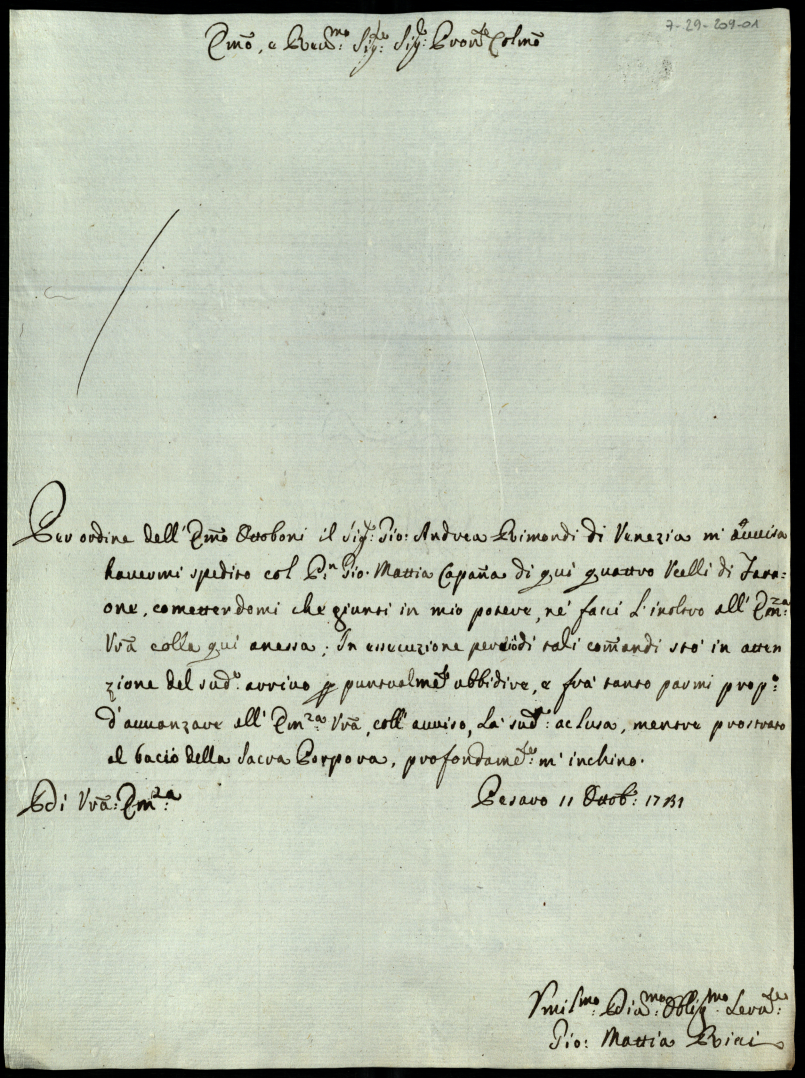 7-29-209-01
Emõ, e Reu:mo Sig:re Sig:r Pron:e Colmõ
Per ordine dell' Emõ Ottoboni il Sig:r Gio: Andrea Rimondi di Venezia m' auuisa
hauermi spedito col P:n Gio: Mattia Capaña di qui quattro Vcelli di Fara=
one, comettendomi che giunti in mio potere, ne' facci l'inoltro all' Em:za
Vrã colla qui anessa; In essecuzione di tali comãndi stò in atten
zione del sud:o arriuo p puntualm:te vbbidire, e frà tanto parmi prop:o
d'auuanzare all' Em:za Vrã, coll' auuiso, la sud:a aclusa, mentre prostrato
al bacio della Sacra Porpora, profondam:te m' inchino.
Di Vrã: Em:za
Pesaro 11 Ottob:
Vmil:mo Oblig:mo Seru:re
Gio: Mattia